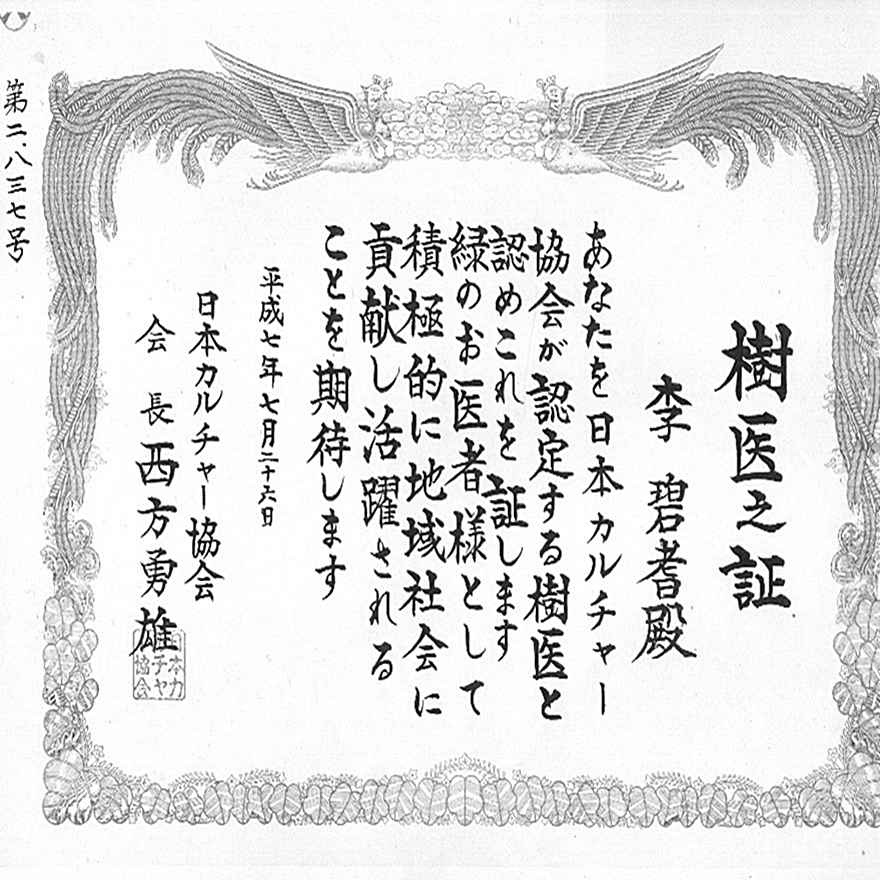 第二、八三七号
樹医之証
李 碧耆殿
あなたを日本カルチャー
協会が認定する樹医と
認めこれを証します
緑のお医者様として
積極的に地域社会に
貢献し活躍される
ことを期待します
平成七年七月二十六日
日本カルチャー協会
会長 西方勇雄